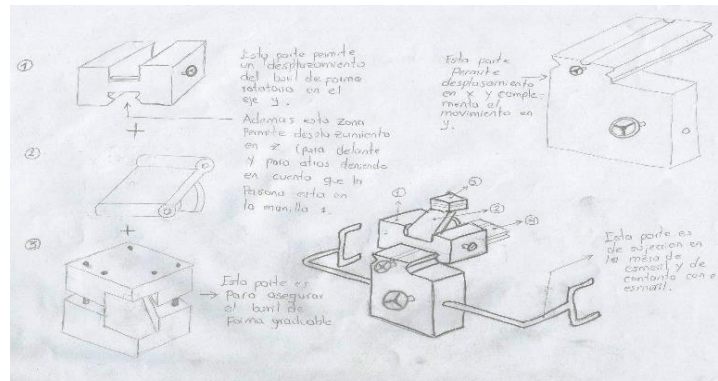 ①
Esta parte permite
un desplazamiento
del buril de forma
rotatoria en el
eje y.
Ademas esta zona
Permite desplazamiento
en z (para delante
y para atras teniendo
en cuenta que la
Persona esta en
la manilla
+
②
+
③
Esta parte es
Para asegurar
el buril de
Forma graduable
Esta parte
Permite
desplasamiento
en x y comple-
menta el
movimiento en
y.
①
③
②
Esta parte es
de sujecion en
la mesa de
esmeril y de
contacto con el
esmeril.